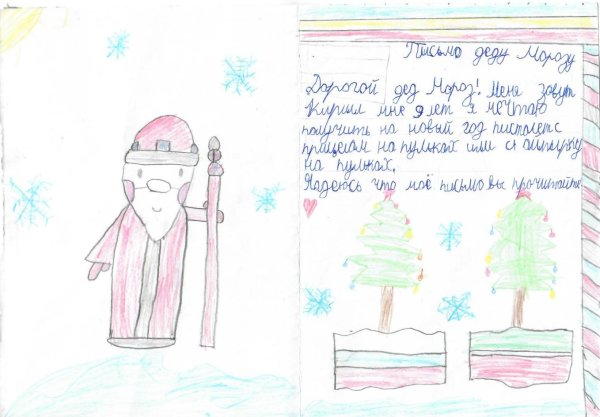 Письмо деду Морозу
Дорогой дед Мороз! Меня зовут
Кирилл мне 9 лет я мечтаю
получить на новый год пистолет с
прицелам на пульках или
на пульках.
Надеюсь что моё письмо вы прочитайте.